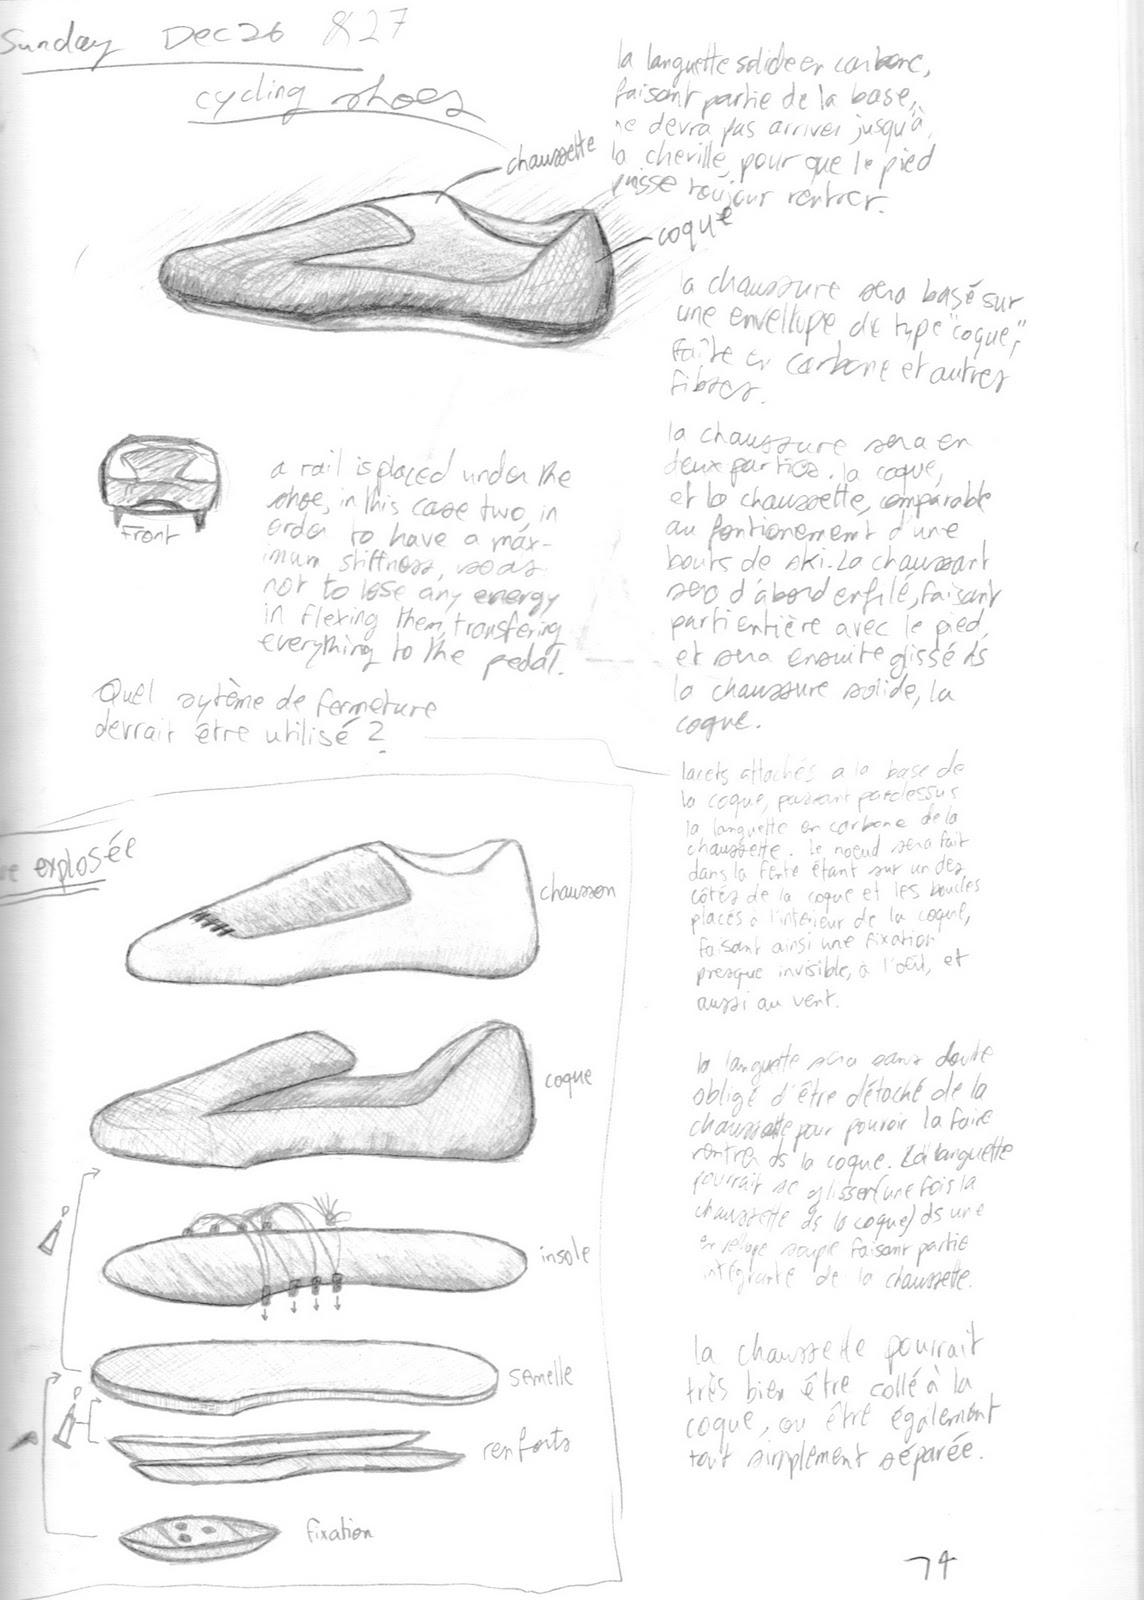 Sunday Dec 26 & 27
cycling shoes
chaussette
coque
la languette solide en carbone,
faisant partie de la base,
ne devra pas arriver jusqu'à
la cheville, pour que le pied
puisse toujour rentrer.
la chaussure sera basé sur
une envellope de type "coque",
faite en carbone et autres
fibres.
la chaussure sera en
deux parties. la coque,
et la chaussette, comparable
au fontionement d'une
bouts de ski. La chaussant
sera d'abord enfilé, faisant
parti entière avec le pied,
et sera ensuite glissé ds
la chaussure solide, la
coque.
Front
a rail is placed under the
shoe, in this case two, in
order to have a max-
imum stiffness, so as
not to lose any energy
in flexing them, transfering
everything to the pedal.
Quel sytème de fermeture
devrait être utilisé ?
lacets attachés a la base de
la coque, passant pardessus
la languette en carbone de la
chaussette. le noeud sera fait
dans la fente étant sur un des
côtés de la coque et les boucles
placés à l'intérieur de la coque,
faisant ainsi une fixation
presque invisible, à l'oeil, et
aussi au vent.
la languette sera sans doute
obligé d'être détaché de la
chaussette pour pouvoir la faire
rentrer ds la coque. La languette
pourrait se glisser (une fois la
chaussette ds la coque) ds une
envellope souple faisant partie
intégrante de la chaussette.
la chaussette pourrait
très bien être collé à la
coque, ou être également
tout simplement séparée.
explosée
chausson
coque
insole
semelle
renforts
fixation
74